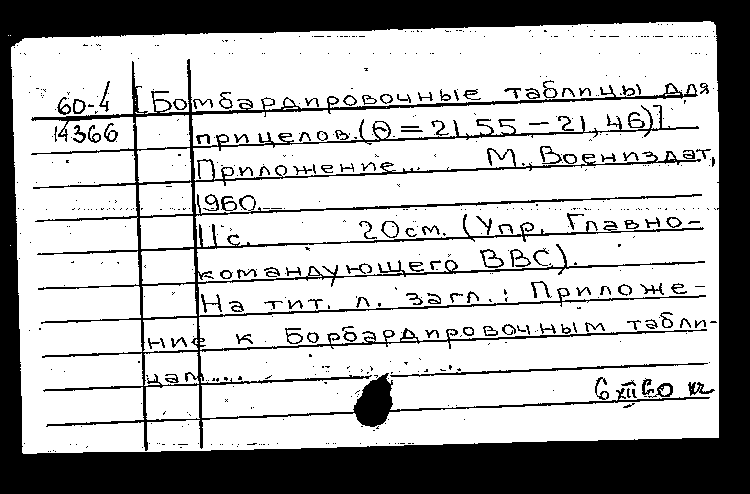 60-4
14366
[Бомбардировочные таблицы для
прицелов.(Θ=21,55-21,46)].
Приложение... М., Воениздат,
1960.
11с. 20см. (Упр. Главно-
командующего ВВС).
На тит. л. загл.: Приложе-
ние к Борбардировочным табли-
цам...
6 XII 60